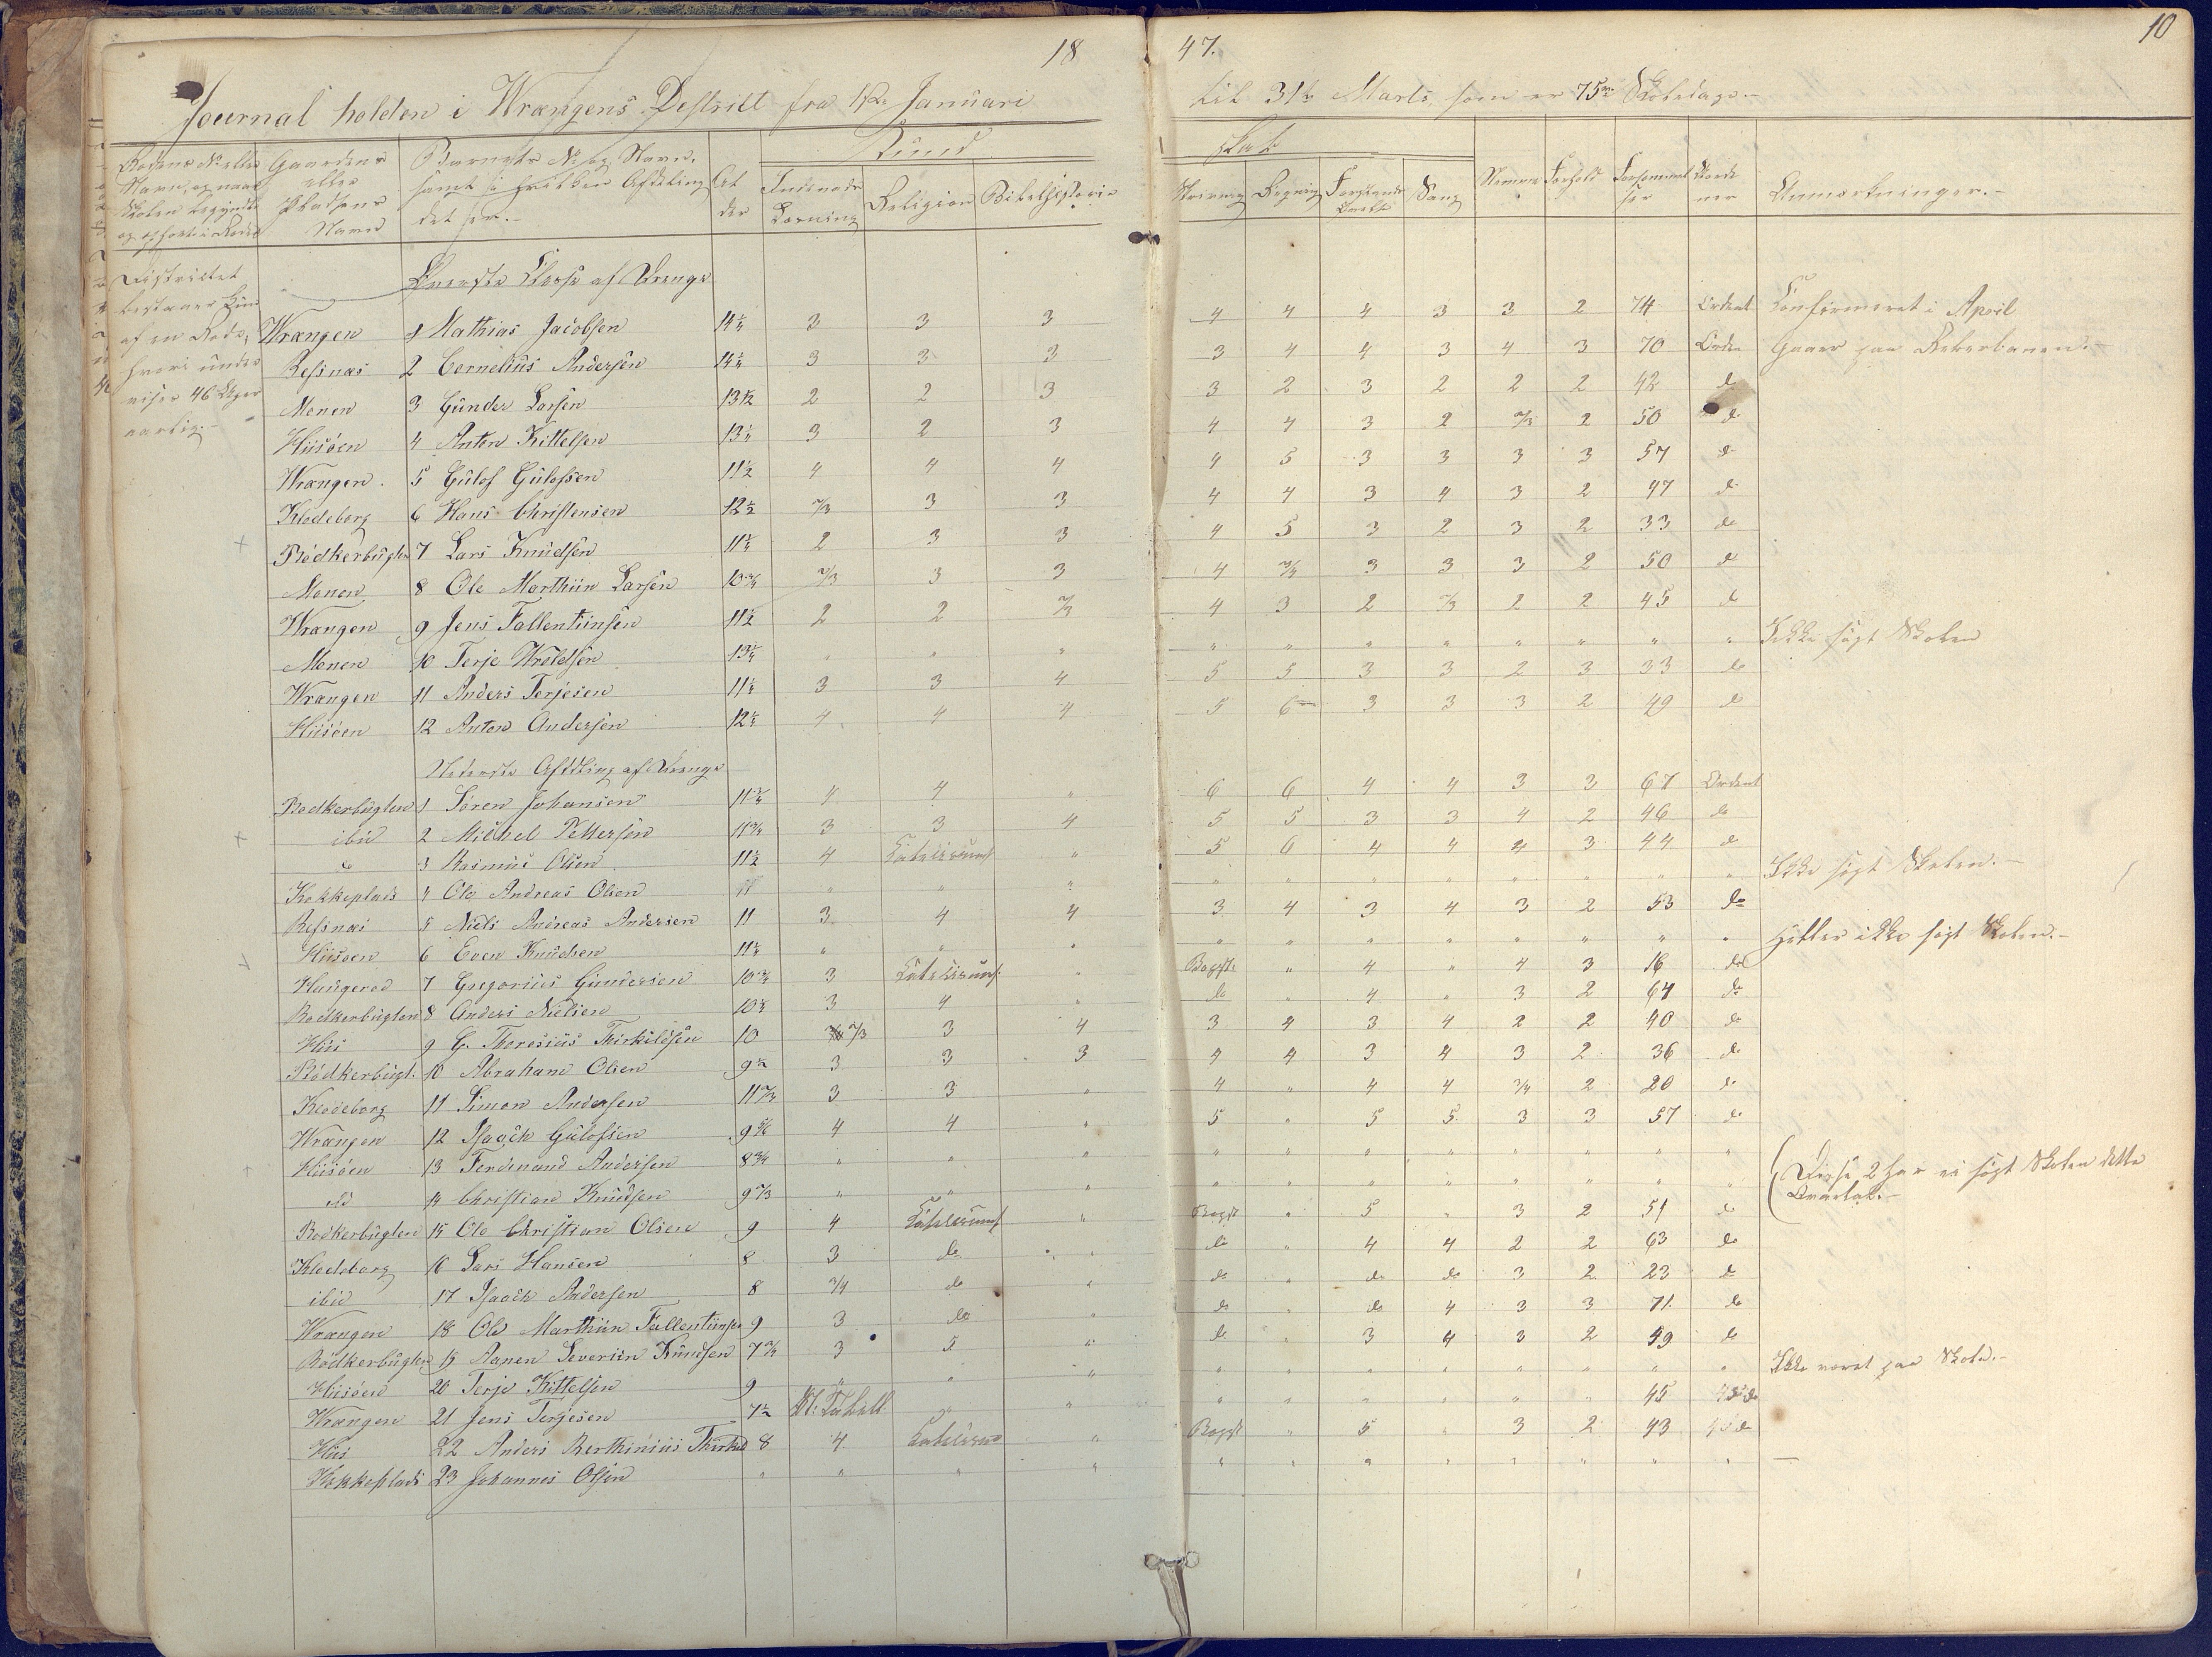 18 47. 10
Journal holden i Wrængens Destrikt fra 1ste Januari til 31te Marts, som er 75 Skoledage.-
Rodens No eller Navn, og naar Skolen begyndte og ophørte i Roden
Gaardens eller Pladsens Navn
Barnets No og Navn, samt i hvilken Afdeling det er.-
Alder
Kundskab
Indenads Læsning
Religion
Bibelhistorie
Skrivning
Regning
Forstands Øvelse
Sang
Nemme
Forhold
Forsømmelser
Anmærkninger.-
Districtet bestaaer kun af en Rode, hvori undervises 46 Uger aarlig.-
Øverste Klasse af Drenge
Wrængen 1 Mathias Jacobsen 14¼ 3 3 3 4 4 4 3 3 2 74 Ordent Konfirmeret i April
Resnæs 2 Cornelius Andersen 14¼ 3 3 3 3 4 4 3 4 3 70 Orden Gaaer paa Rekerbanen.-
Monen 3 Günder Larsen 13½ 2 2 3 3 2 3 2 2 2 42 do
Hiisöen 4 Anton Kittelsen 13¼ 3 2 3 4 4 3 2 2/3 2 50 do
Wrængen 5 Gülof Gülofsen 11½ 4 4 4 4 5 3 3 3 3 57 do
Klodeborg 6 Hans Christensen 12½ 2/3 3 3 4 4 3 4 3 2 47 do
Bödkerbugten 7 Lars Knudsen 11¼ 2 3 3 4 5 3 2 3 2 33 do
Monen 8 Ole Marthiin Larsen 10¾ 2/3 3 3 4 3/4 3 3 3 2 50 do
Wrængen 9 Jens Fallentiinsen 11½ 2 2 2/3 4 3 2 2/3 2 2 45 do
Monen 10 Terje Wroldsen 13¼ " " " " " " " " " " " Ikke søgt Skolen
Wrængen 11 Anders Terjesen 11¼ 3 3 4 5 5 3 3 2 3 33 do
Hiisöen 12 Anton Andersen 12¼ 4 4 4 5 6 3 3 3 2 49 do
Nederste Afdeling af Drenge
Bödkerbugten 1 Sören Johansen 11¼ 4 4 " 6 6 4 4 3 3 67 Ordent
ibid 2 Michel Pettersen 11¾ 3 3 4 5 5 3 3 4 2 46 do
do 3 Rasmus Olsen 11½ 4 Katekismus " 5 6 4 4 4 3 44 do
Kokkeplads 4 Ole Andreas Olsen 11 " " " " " " " " " " " Ikke søgt Skolen.-
Resnæs 5 Niels Andreas Andersen 11 3 4 4 3 4 3 4 3 2 53 do
Hiisöen 6 Even Knudsen 11¼ " " " " " " " " " " " Heller ikke søgt Skolen.-
Haugerod 7 Gregorius Gundersen 10¾ 3 Katekismus " Bogst: " 4 " 4 3 16 do
Bödkerbugten 8 Anders Nielsen 10¼ 3 4 " do " 4 " 3 2 64 do
Hiis 9 G. Theresius Thirkildsen 10 2/3 3 4 3 4 3 4 2 2 40 do
Bödkerbugt. 10 Abraham Olsen 9½ 3 3 3 4 4 3 4 3 2 36 do
Klodeborg 11 Simon Andersen 11 2/3 3 3 " 4 " 4 4 3/4 2 20 do
Wrængen 12 Isaach Gülofsen 9 5/6 4 4 " 5 " 5 5 3 3 57 do
Hiisöen 13 Ferdenand Andersen 8¾ " " " " " " " " " " "
do 14 Christian Knudsen 9 2/3 " " " " " " " " " " "
(Disse 2 har ei søgt Skolen dette Qvartal.-
Bödkerbugten 15 Ole Christian Olsen 9 4 Katekismus " Bogst " 5 " 3 2 51 do
Klodeborg 16 Lars Hansen 8 3 do " do " 4 4 2 2 63 do
ibid 17 Isaach Andersen 8 3/4 do " do " do do 3 2 23 do
Wrængen 18 Ole Marthiin Fallentiinsen 9 3 do " do " do 4 3 3 71 do
Bödkerbugten 19 Aanen Severiin Knudsen 7¾ 3 5 " do " 3 4 3 2 59 do
Hiisöen 20 Terje Kittelsen 9 " " " " " " " " " " " Ikke været paa Skole.-
Wrængen 21 Jens Terjesen 7½ " " " " " " " " 45 do
Hiis 22 Anders Berthinius Thirkild 8 4 Katekismus " Bogst " 5 " 3 2 43 do
Kokkeplads 23 Johannes Olsen " " " " " " " " " " " " —